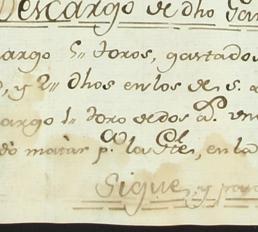 Descargo de dho Gan
argo 5 toros, gastados
, y 2 dhos en los de S. 
argo 1 toro de dos a.s un
dò matar p.a la Gte, en la
Sigue, y pa